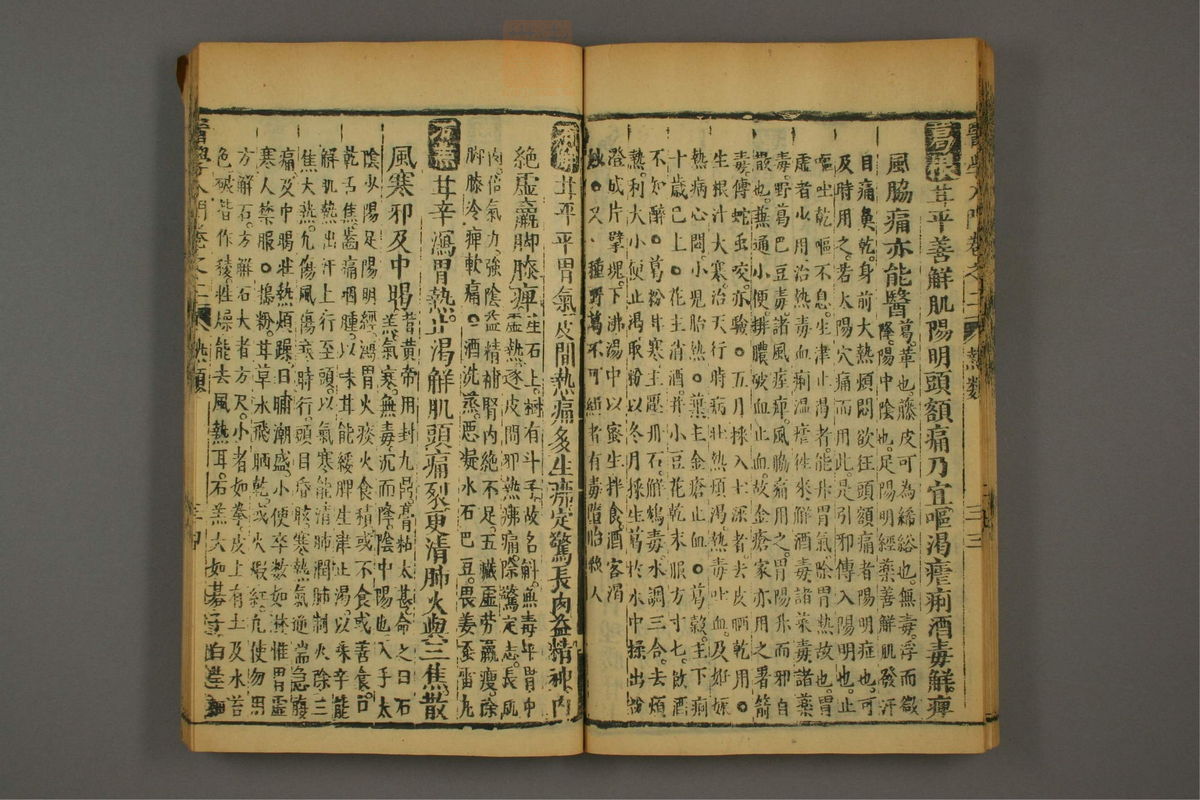 醫學入門卷之二 熱類 三三
葛根 甘平善解肌陽明頭額痛乃宜嘔渴瘧痢酒毒解痺
風脇痛亦能醫葛革也藤皮可為絺綌也無毒浮而微
降陽中陰也足陽明經藥善解肌發汗
目痛鼻乾身前大熱煩悶欲狂頭額痛者陽明症也可
及時用之若太陽穴痛而用此是引邪傳入陽明也止
嘔吐乾嘔不息生津止渴者能升胃氣除胃熱故也胃
虛者少用治熱毒血痢溫瘧往來解酒毒諸藥毒諸
毒野葛巴豆毒諸風痙痺風脇痛用之胃陽升而邪自
散也兼通小便排膿破血止血故金瘡家亦用之署箭
毒傅蛇虫咬亦驗○五月採入土深者去皮晒乾用○
生根汁大寒治天行時病壯熱煩渴熱毒吐血及妊娠
熱病心悶小兒胎熱○葉主金瘡止血○葛穀主下痢
十歲已上○花主消酒并小豆花乾末服方寸七飲酒
不知醉○葛粉甘寒主壓丹石解鴆毒水調三合去煩
熱利大小便止渴取粉以冬月採生葛於水中揉出粉
澄成片擘塊下沸湯中以蜜生拌食酒客渴
妙○又一種野葛不可緝者有毒墮胎殺人
石斛 甘平平胃氣皮間熱痛多生疿定驚長肉益精神內
絕虛羸脚膝痺生石上樹有斗子故名斛無毒平胃中
虛熱逐皮間邪熱疿痛除驚定志長肌
肉倍氣力強陰益精補腎內絕不足五臟虛勞羸瘦除
脚膝冷痺軟痛○酒洗蒸惡凝水石巴豆畏姜蚕雷丸
石羔 甘辛瀉胃熱止渴解肌頭痛裂更清肺火與三焦散
風寒邪及中暍昔黃帝用封九鼎膏粘太甚命之曰石
羔氣寒無毒沉而降陰中陽也入手太
陰少陽足陽明經瀉胃火痰火食積或不食或善食口
乾舌焦齒痛咽腫以味甘能緩脾生津止渴以味辛能
解肌熱出汗上行至頭以氣寒能清肺潤肺制火除三
焦大熱凡傷風傷寒時行頭目昏眩寒熱氣逆喘急腹
痛及中暍壯熱煩躁日晡潮盛小便卒數如淋惟胃虛
寒人禁服○搗粉甘草水飛晒乾或火煅紅危使勿男
方解石方解石大者方尺小者如拳皮上有土及水苔
色碾皆作稜性燥能去風熱耳石羔大如碁子白瑩
醫學入門卷之二 熱類 三四